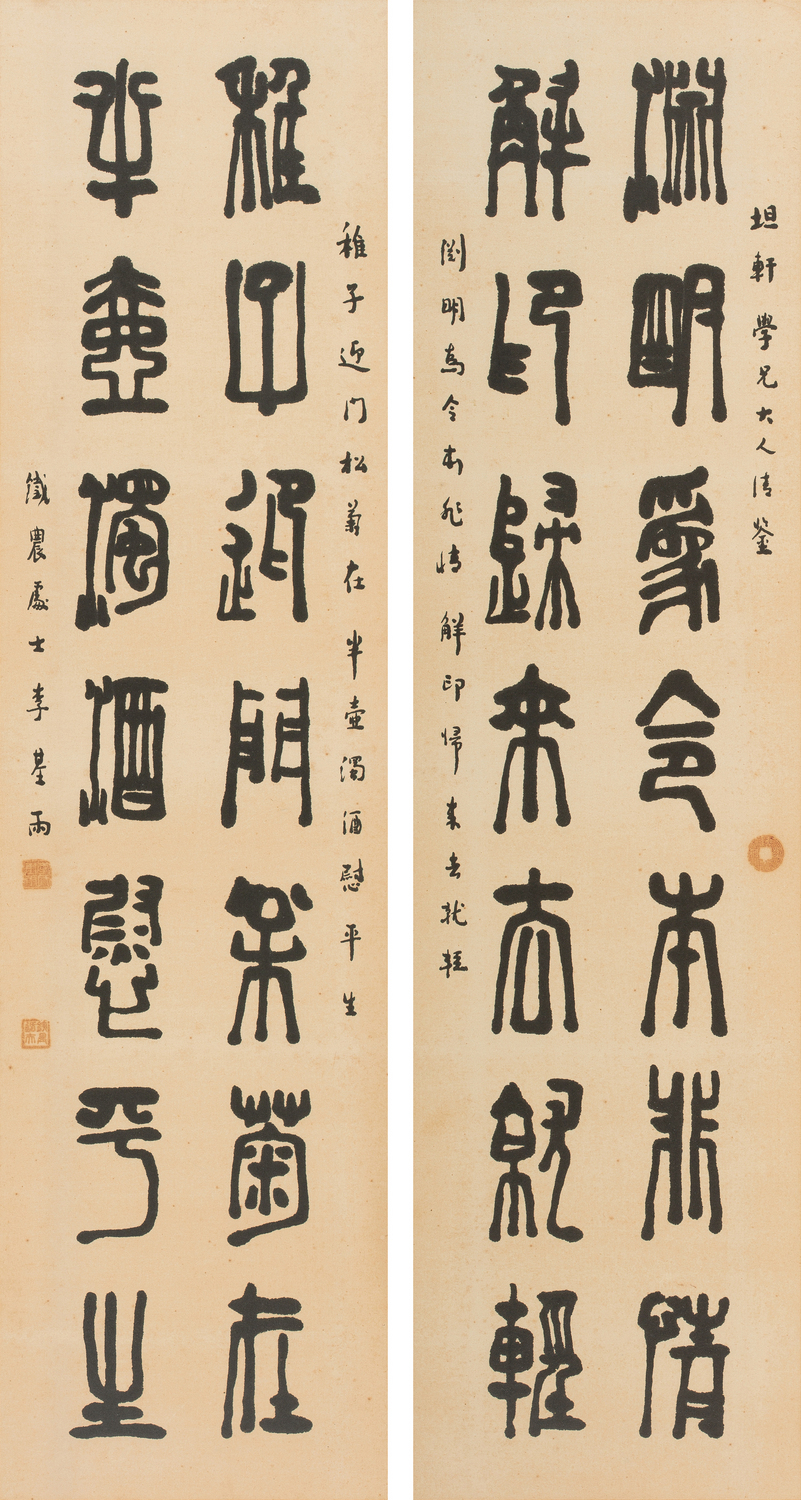 坦軒學兄大人清鑒
淵明為令本非情
解印歸來去就輕
淵明為令本非情解印歸來去就輕
稚子迎門松菊在
稚子迎門松菊在半壺濁酒慰平生
半壺濁酒慰平生
鐵農處士李基雨